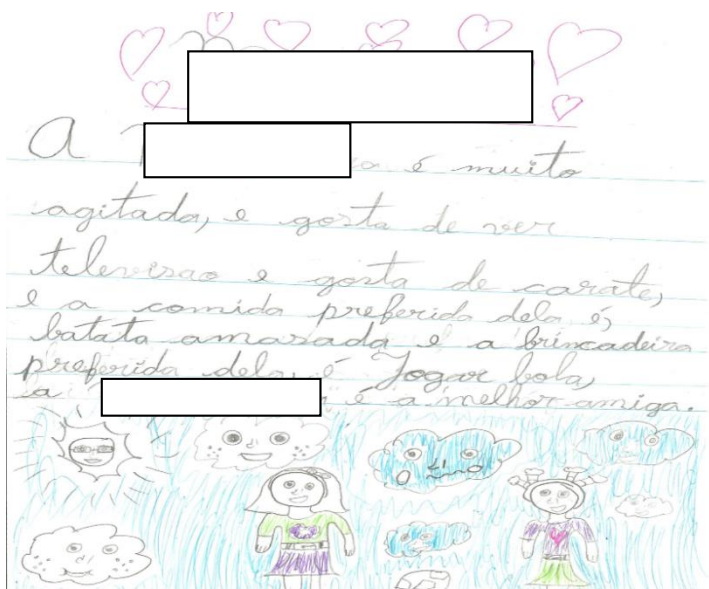 A é muito
agitada, e gosta de ver
televisao e gosta de carate,
e a comida preferida dela é,
batata amasada e a brincadeira
preferida dela, é Jogar bola,
a é a melhor amiga.